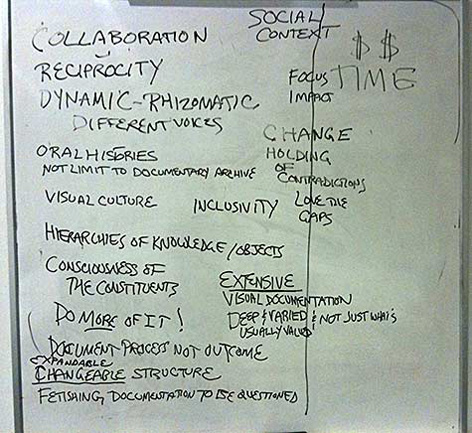 COLLABORATION
RECIPROCITY
DYNAMIC-RHIZOMATIC
DIFFERENT VOICES
ORAL HISTORIES
NOT LIMIT TO DOCUMENTARY ARCHIVE
VISUAL CULTURE
INCLUSIVITY
HIERARCHIES OF KNOWLEDGE/OBJECTS
CONSCIOUSNESS OF
THE CONSTITUENTS
DO MORE OF IT!
DOCUMENT-PROCESS NOT OUTCOME
EXPANDABLE
CHANGEABLE STRUCTURE
FETISHING DOCUMENTATION TO BE QUESTIONED
SOCIAL
CONTEXT
$ $
TIME
FOCUS
IMPACT
CHANGE
HOLDING
OF
CONTRADICTIONS
LOVE THE
GAPS
EXTENSIVE
VISUAL DOCUMENTATION
DEEP & VARIED & NOT JUST WHAT'S
USUALLY VALUED